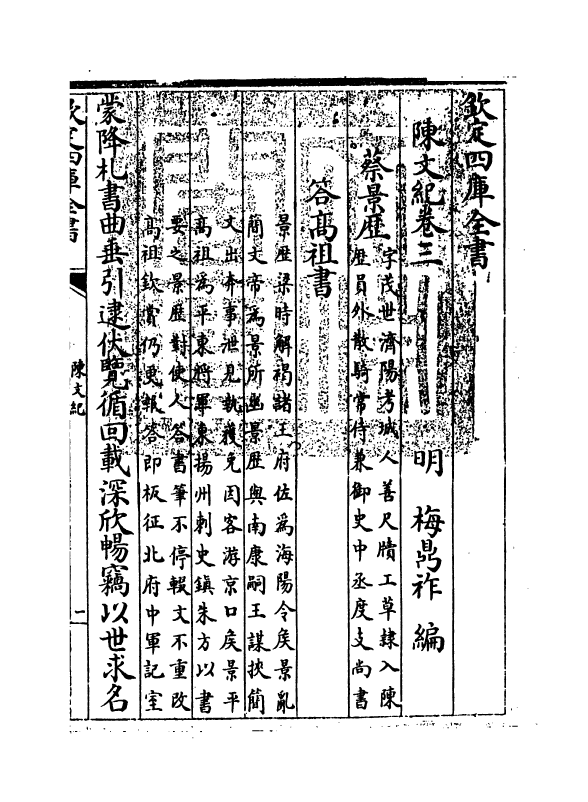 欽定四庫全書
陳文紀卷三
明 梅鼎祚 編
蔡景歷
字茂世濟陽考城人善尺牘工草隸入陳
歷員外散騎常侍兼御史中丞度支尚書
答高祖書
景歷梁時解褐諸王府佐為海陽令侯景亂
簡文帝為景所幽景歷與南康嗣王謀挾簡
文出奔事泄見執獲免因客游京口侯景平
高祖為平東將軍東揚州刺史鎮朱方以書
要之景歷對使人答書筆不停輟文不重改
高祖欽賞仍更報答即板征北府中軍記室
蒙降札書曲垂引逮伏覽循回載深欣暢竊以世求名
欽定四庫全書
陳文紀
一